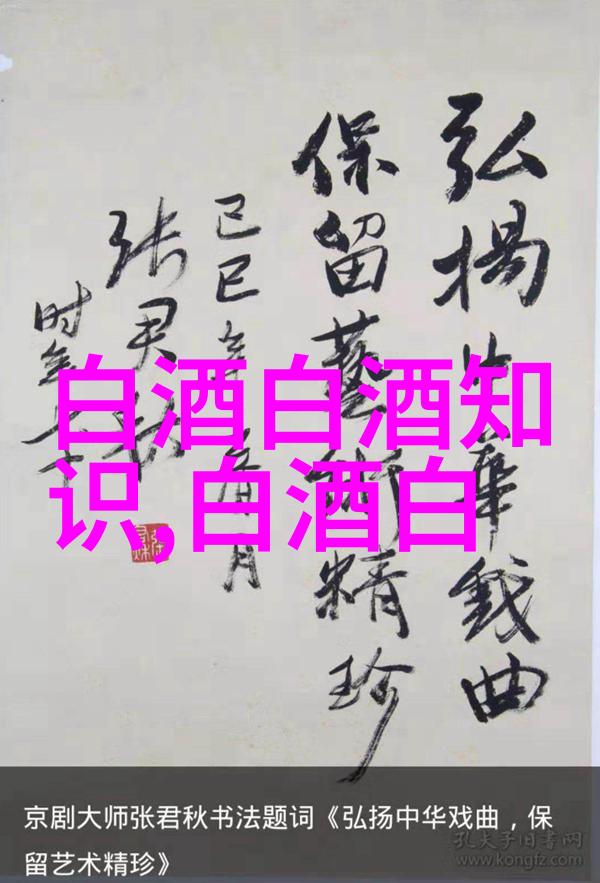 弘揚中華戏曲
保留藝術精珍
己巳年月
张君秋
时年七十
白酒白酒知
识,白酒白
京剧大师张君秋书法题词《弘扬中华戏曲，保
留艺术精珍》
孔夫子旧书网
www.kongfz.com